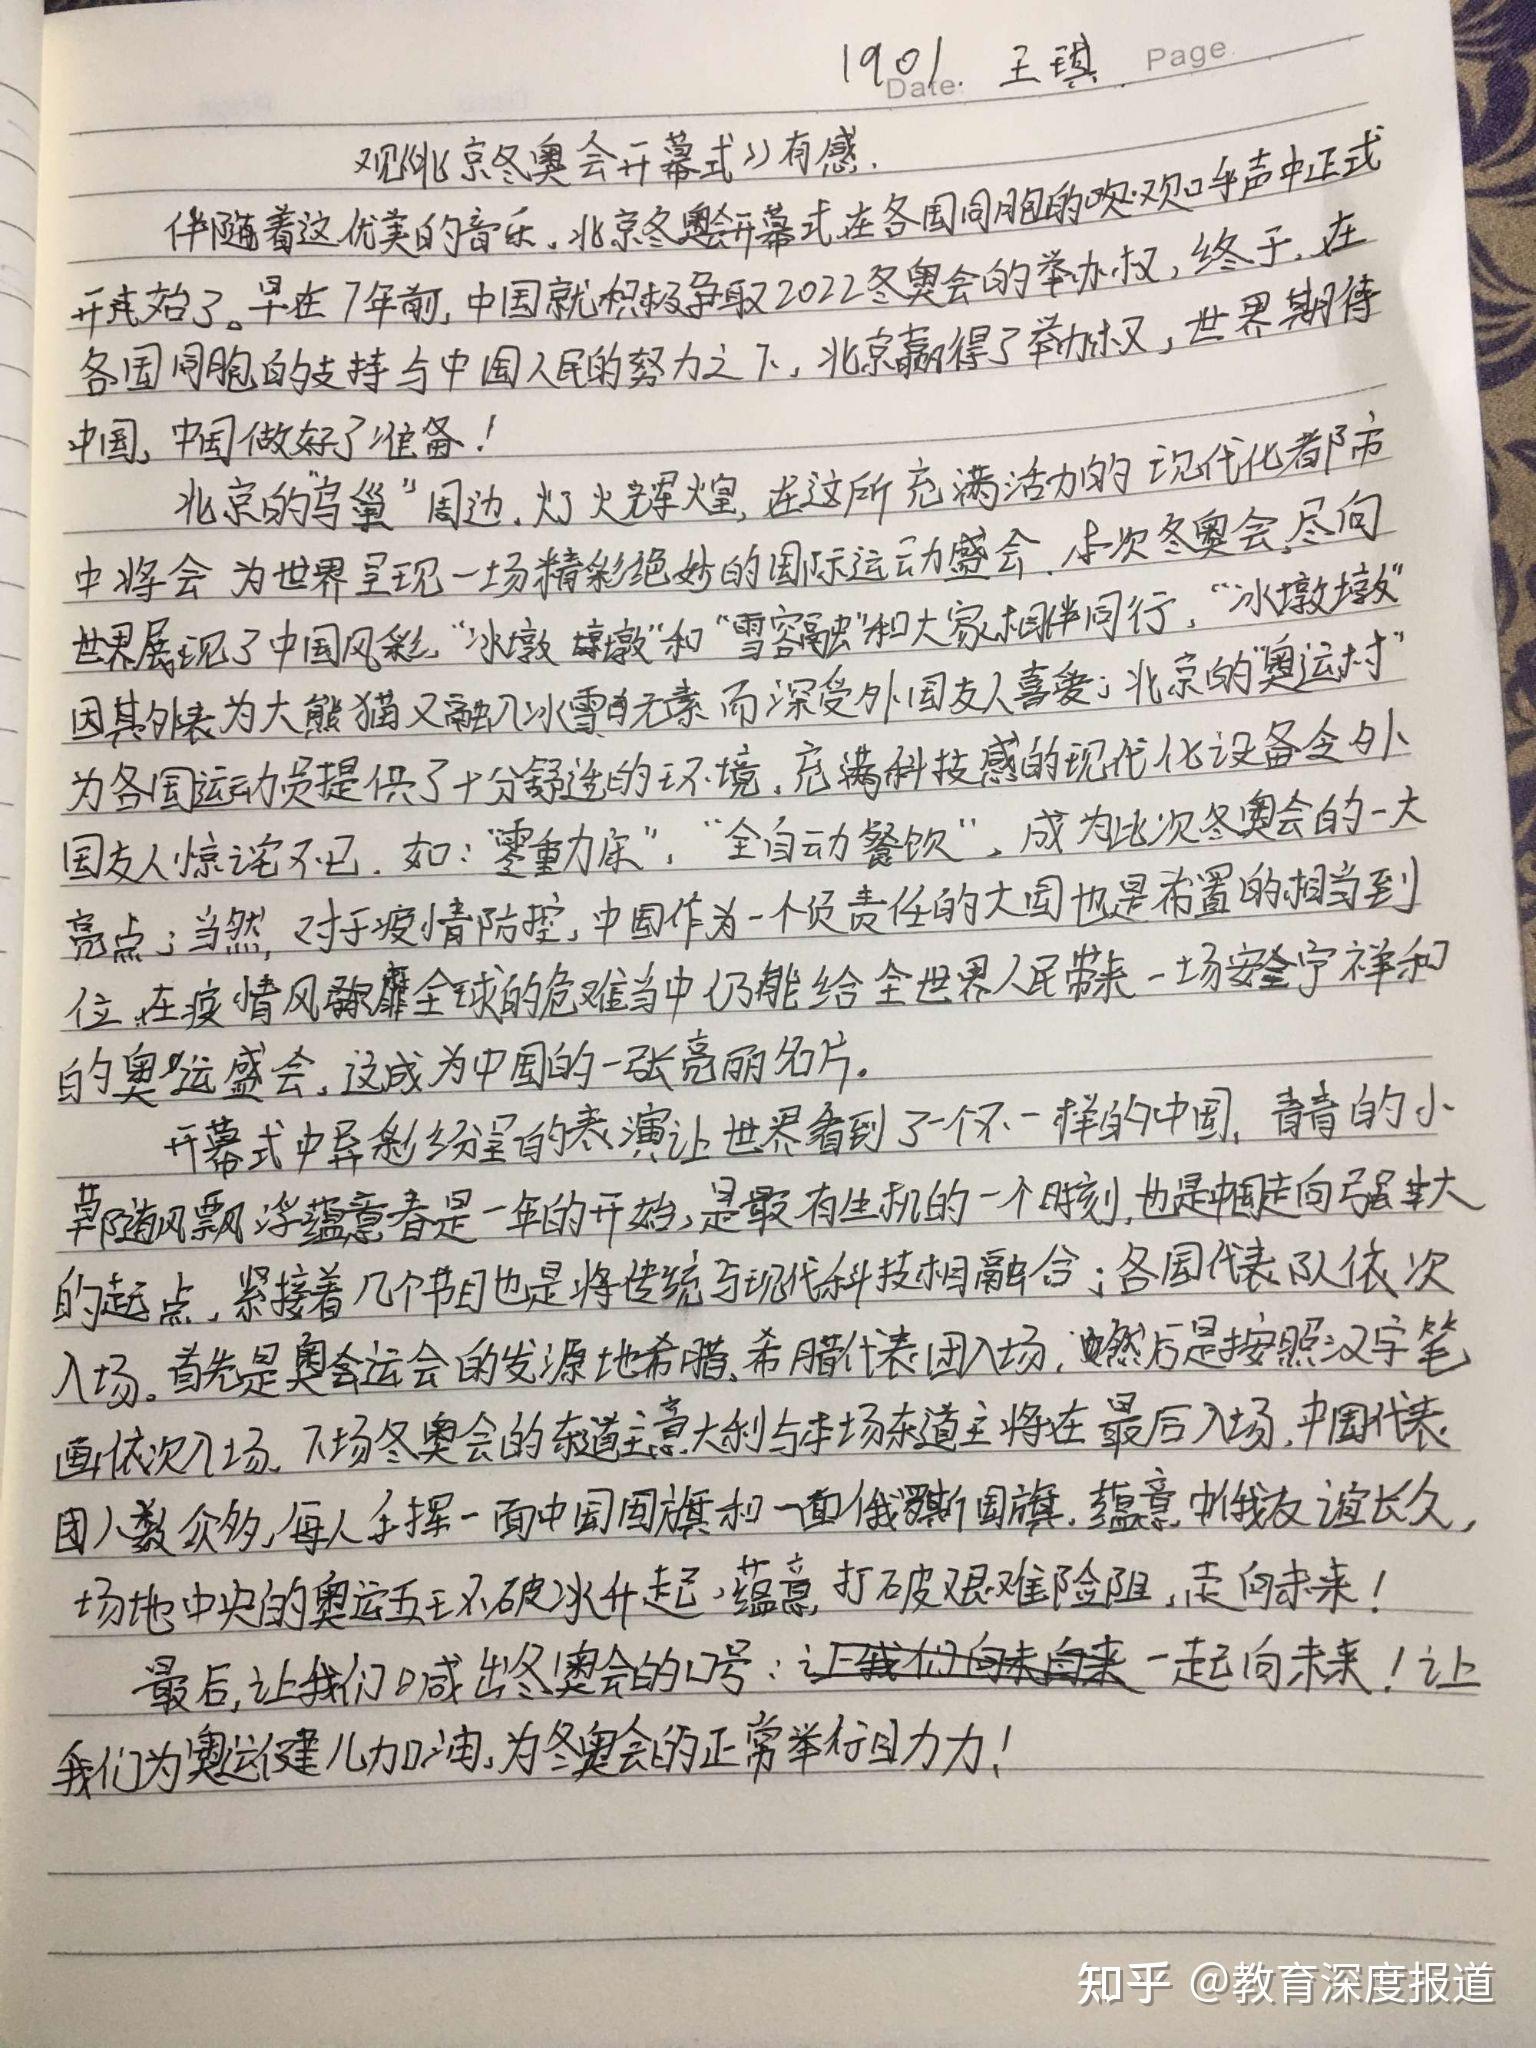 1901 王琪
Date. Page
观《北京冬奥会开幕式》有感.
伴随着这优美的音乐,北京冬奥会开幕式在各国同胞的欢呼声中正式
开始了。早在7年前,中国就积极争取2022冬奥会的举办权,终于,在
各国同胞的支持与中国人民的努力之下,北京赢得了举办权,世界期待
中国,中国做好了准备!
北京的"鸟巢"周边,灯火辉煌,在这所充满活力的现代化都市
中将会为世界呈现一场精彩绝妙的国际运动盛会.本次冬奥会,尽向
世界展现了中国风彩,"冰墩墩"和"雪容融"和大家相伴同行,"冰墩墩"
因其外表为大熊猫又融入冰雪元素而深受外国友人喜爱;北京的"奥运村"
为各国运动员提供了十分舒适的环境,充满科技感的现代化设备令外
国友人惊诧不已.如:"零重力床","全自动餐饮",成为此次冬奥会的一大
亮点;当然,对于疫情防控,中国作为一个负责任的大国也是布置的相当到
位,在疫情风靡全球的危难当中仍能给全世界人民带来一场安全宁祥和
的奥运盛会,这成为中国的一张亮丽名片。
开幕式中异彩纷呈的表演让世界看到了一个不一样的中国,青青的小
草随风飘浮蕴意春是一年的开始,是最有生机的一个时刻,也是中国走向强大
的起点,紧接着几个节目也是将传统与现代科技相融合;各国代表队依次
入场。首先是奥运会的发源地希腊,希腊代表团入场,然后是按照汉字笔
画依次入场,下场冬奥会的东道主意大利与本场东道主将在最后入场,中国代表
团人数众多,每人手挥一面中国国旗和一面俄罗斯国旗,蕴意中俄友谊长久,
场地中央的奥运五环破冰升起,蕴意打破艰难险阻,走向未来!
最后,让我们喊出冬奥会的口号:让我们向未来一起向未来!让
我们为奥运健儿加油,为冬奥会的正常举行助力!
知乎 @教育深度报道